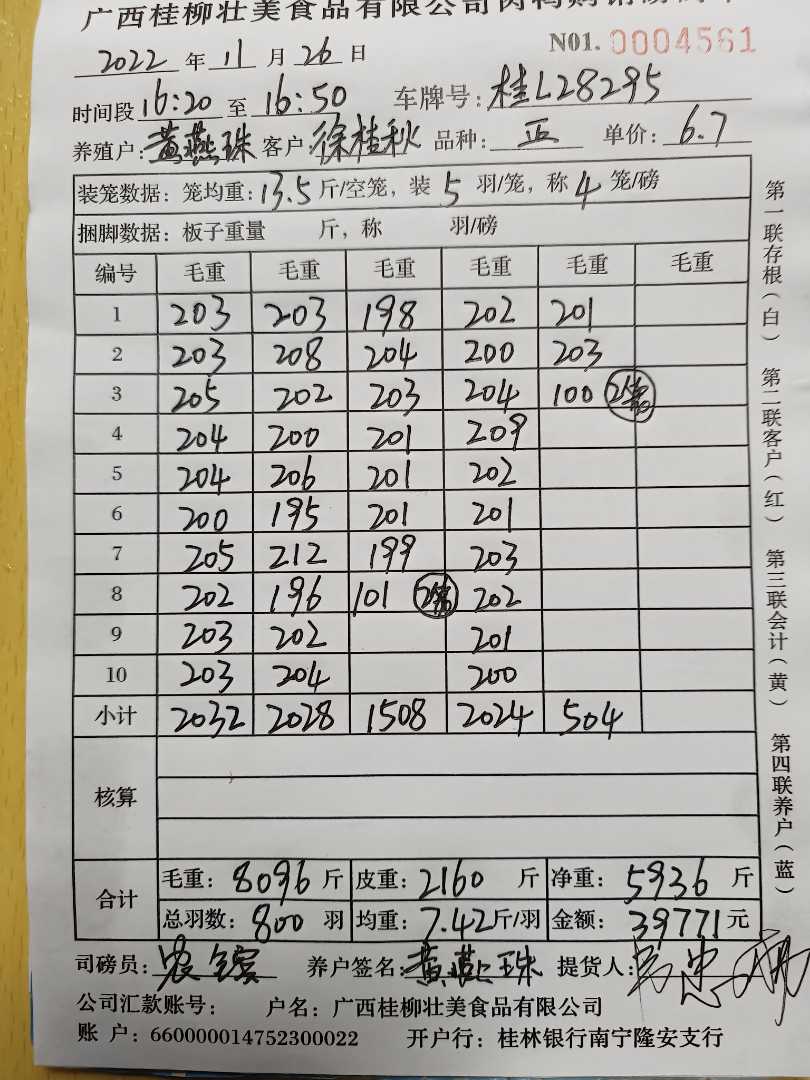 广西桂柳壮美食品有限公司肉鸭购销磅码单
2022 年 11 月 26 日 N01. 0004561
时间段 16:20 至 16:50 车牌号: 桂L28295
养殖户: 黄燕珠 客户: 徐桂秋 品种: 正 单价: 6.7
装笼数据: 笼均重: 13.5 斤/空笼, 装 5 羽/笼, 称 4 笼/磅
捆脚数据: 板子重量 斤, 称 羽/磅
编号 毛重 毛重 毛重 毛重 毛重 毛重
1 203 203 198 202 201
2 203 208 204 200 203
3 205 202 203 204 100 2笼
4 204 200 201 209
5 204 206 201 202
6 200 195 201 201
7 205 212 199 203
8 202 196 101 2笼 202
9 203 202 201
10 203 204 200
小计 2032 2028 1508 2024 504
核算
合计
毛重: 8096 斤 皮重: 2160 斤 净重: 5936 斤
总羽数: 800 羽 均重: 7.42 斤/羽 金额: 39771 元
司磅员: 养户签名: 黄燕珠 提货人:
公司汇款账号: 户名: 广西桂柳壮美食品有限公司
账 户: 660000014752300022 开户行: 桂林银行南宁隆安支行
第一联存根(白) 第二联客户(红) 第三联会计(黄) 第四联养户(蓝)